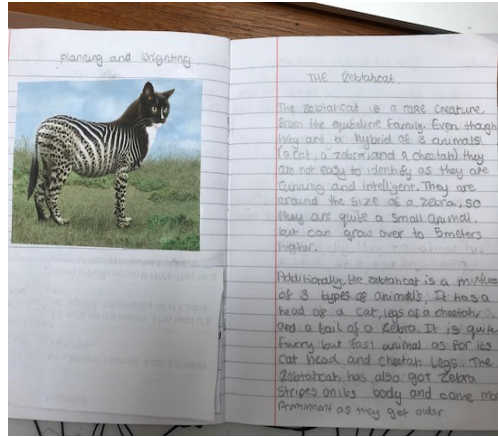 planning and
THE Zebtahcat
The zebtahcat is a rare creature
from the equibline family. Even though
they are a hybrid of 3 animals
(a cat, a zebra and a cheetah) they
are not easy to identify as they are
cunning and intelligent. They are
around the size of a zebra, so
they are quite a small animal.
but can grow over to 5 meters
higher.
Additionally, the zebtahcat is a mixture
of 3 types of animals, It has a
head of a cat, legs of a cheetah
and a tail of a zebra. It is quite
furry but fast animal as for its
cat head and cheetah legs. The
Zebtahcat, has also got zebra
stripes on its body and come mo
prominent as they get older.